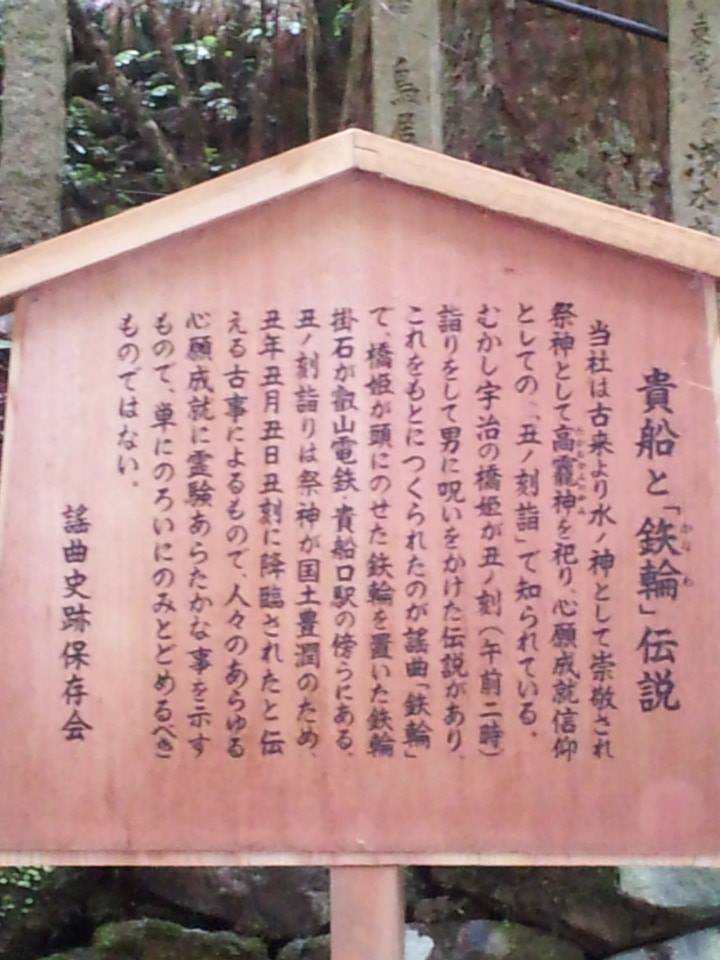 貴船と「鉄輪」伝説
かなわ
当社は古来より水ノ神として崇敬され
祭神として高龗神を祀り、心願成就信仰
たかおかみのかみ
としての、「丑ノ刻詣」で知られている。
むかし宇治の橋姫が丑ノ刻(午前二時)
詣りをして男に呪いをかけた伝説があり、
これをもとにつくられたのが謡曲「鉄輪」
で、橋姫が頭にのせた鉄輪を置いた鉄輪
掛石が叡山電鉄・貴船口駅の傍らにある。
丑ノ刻詣りは祭神が国土豊潤のため、
丑年丑月丑日丑刻に降臨されたと伝
える古事によるもので、人々のあらゆる
心願成就に霊験あらたかな事を示す
もので、単にのろいにのみとどめるべき
ものではない。
謡曲史跡保存会
鳥居
東京